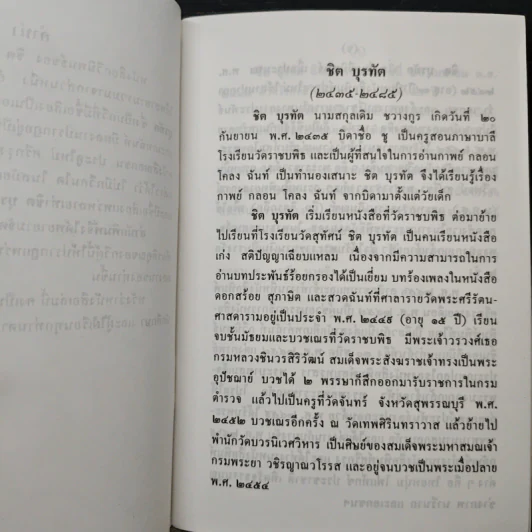 ชิต บุรทัต
(๒๔๓๕-๒๔๘๕)
ชิต บุรทัต นามสกุลเดิม ชวางกูร เกิดวันที่ ๒๐
กันยายน พ.ศ. ๒๔๓๕ บิดาชื่อ ชู เป็นครูสอนภาษาบาลี
โรงเรียนวัดราชบพิธ และเป็นผู้ที่สนใจในการอ่านกาพย์ กลอน
โคลง ฉันท์ เป็นทำนองเสนาะ ชิต บุรทัต จึงได้เรียนรู้เรื่อง
กาพย์ กลอน โคลง ฉันท์ จากบิดามาตั้งแต่วัยเด็ก
ชิต บุรทัต เริ่มเรียนหนังสือที่วัดราชบพิธ ต่อมาย้าย
ไปเรียนที่โรงเรียนวัดสุทัศน์ ชิต บุรทัต เป็นคนเรียนหนังสือ
เก่ง สติปัญญาเฉียบแหลม เนื่องจากมีความสามารถในการ
อ่านบทประพันธ์ร้อยกรองได้เป็นเยี่ยม บทร้องเพลงในหนังสือ
ดอกสร้อย สุภาษิต และสวดฉันท์ที่ศาลารายวัดพระศรีรัตน-
ศาสดารามอยู่เป็นประจำ พ.ศ. ๒๔๔๘ (อายุ ๑๕ ปี) เรียน
จบชั้นมัธยมและบวชเณรที่วัดราชบพิธ มีพระเจ้าวรวงศ์เธอ
กรมหลวงชินวรสิริวัฒน์ สมเด็จพระสังฆราชเจ้าทรงเป็นพระ
อุปัชฌาย์ บวชได้ ๒ พรรษาก็สึกออกมารับราชการในกรม
ตำรวจ แล้วไปเป็นครูที่วัดจันทร์ จังหวัดสุพรรณบุรี พ.ศ.
๒๔๕๒ บวชเณรอีกครั้ง ณ วัดเทพศิรินทราวาส แล้วย้ายไป
พำนักวัดบวรนิเวศวิหาร เป็นศิษย์ของสมเด็จพระมหาสมณเจ้า
กรมพระยา วชิรญาณวโรรส และอยู่จนบวชเป็นพระเมื่อปลาย
พ.ศ. ๒๔๕๔